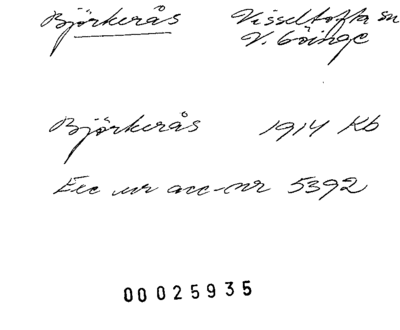 Björkerås Visseltofta sn
V. Göinge
Björkerås 1914 Kb
Exc ur acc-nr 5392
00025935